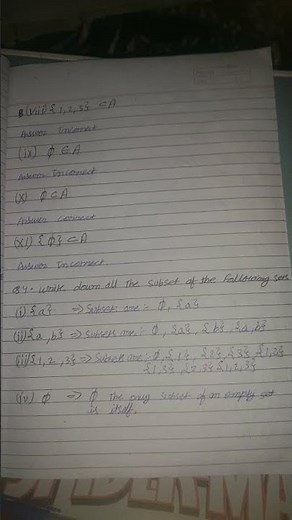 (viii) {1, 2, 3} ⊂ A
Answer Incorrect
(ix) ϕ ∈ A
Answer Incorrect
(x) ϕ ⊂ A
Answer correct
(xi) {ϕ} ⊂ A
Answer Incorrect
Q4. Write down all the subset of the following sets
(i) {a} ⇒ Subsets are :- ϕ, {a}
(ii) {a, b} ⇒ Subsets are :- ϕ, {a}, {b}, {a, b}
(iii) {1, 2, 3} ⇒ Subsets are :- ϕ, {1}, {2}, {3}, {1, 2}
{1, 3} {2, 3} {1, 2, 3}
(iv) ϕ ⇒ ϕ The only subset of an empty set
is itself.